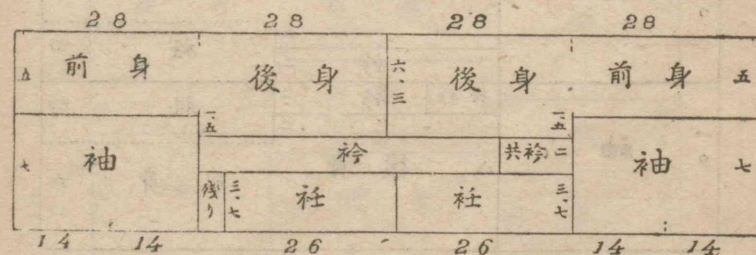 28 28 28 28
五 前身 後身 六、三 後身 前身 五
一、五 一、五
七 袖 衿 共衿 二 袖 七
残り 三、七 衽 衽 三、七
14 14 26 26 14 14